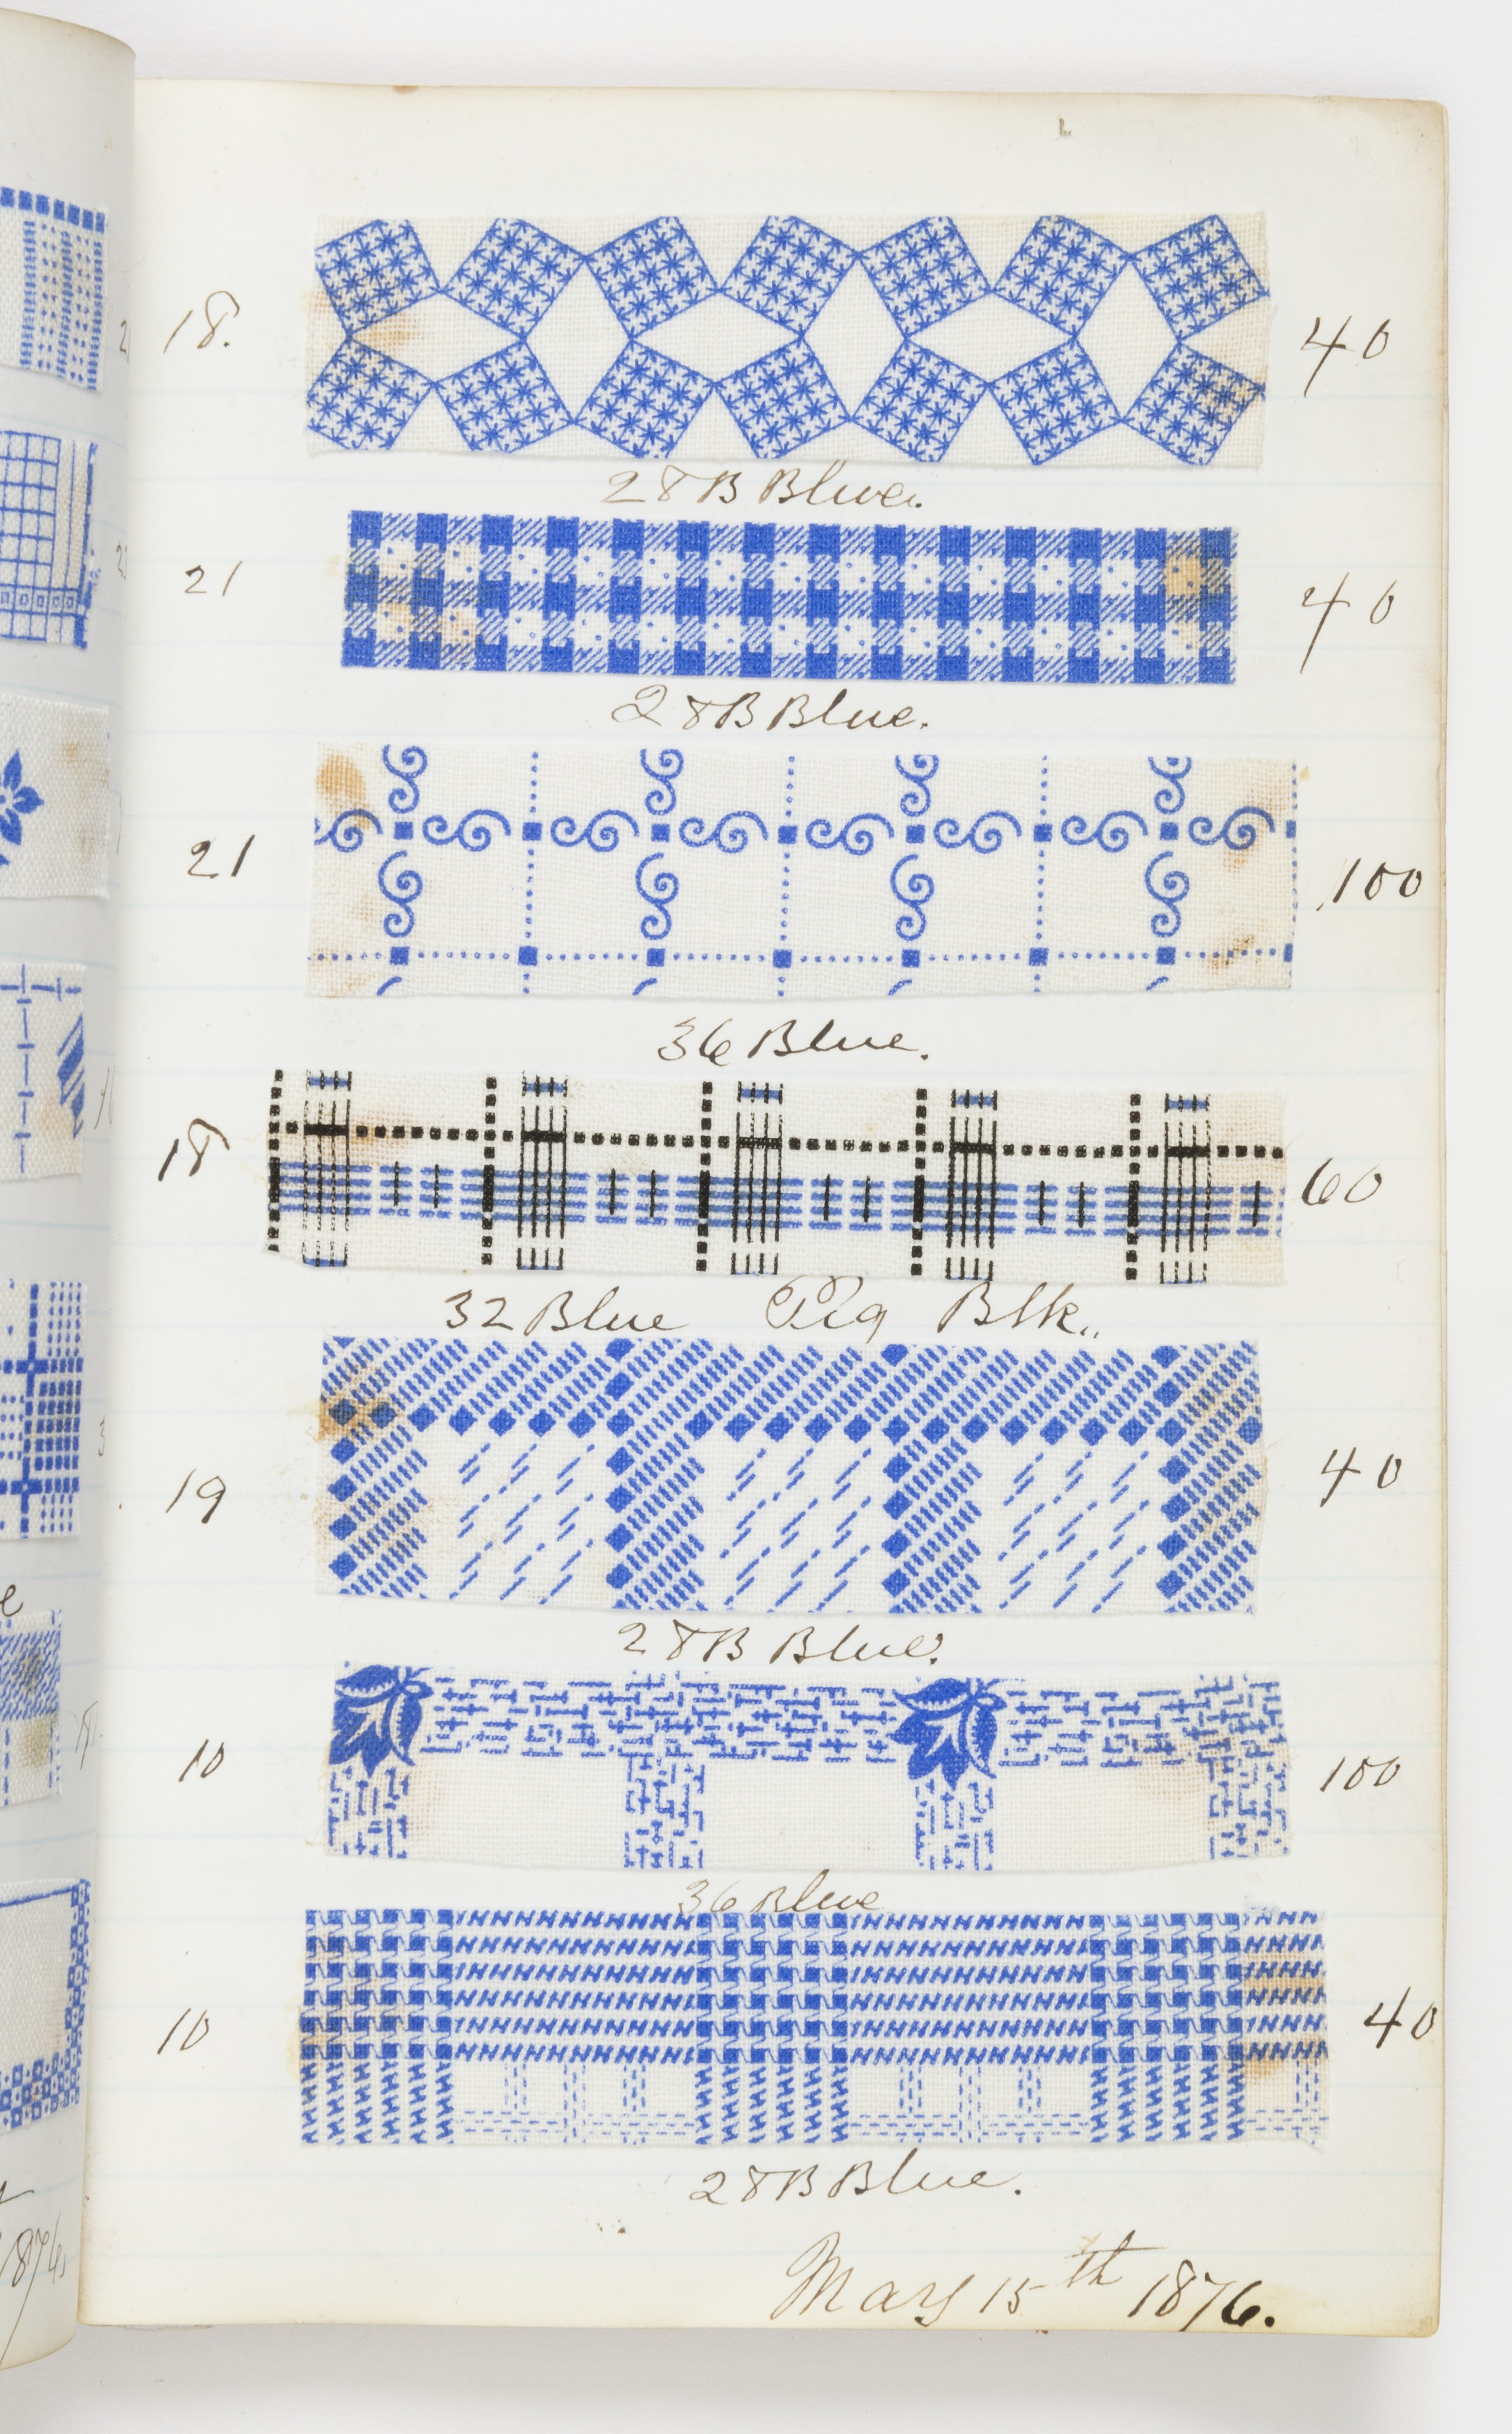 18.
40
28B Blue.
21
40
28B Blue.
21
100
36 Blue.
18
60
32 Blue Pig Blk.
19
40
28B Blue.
10
100
36 Blue
10
40
28B Blue.
May 15th 1876.